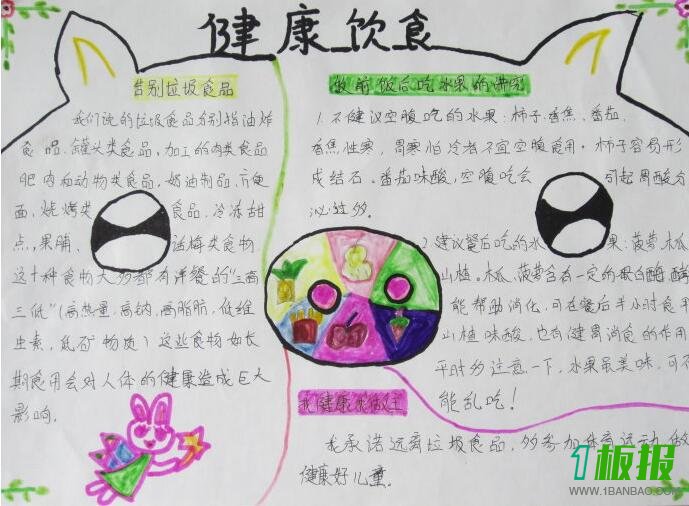 健康饮食
告别垃圾食品
我们说的垃圾食品分别指油炸
食品、罐头类食品,加工的肉类食品
肥肉和动物类食品,奶油制品、方便
面,烧烤类食品、冷冻甜
点,果脯、话梅类食物
这十种食物大多都有洋餐的“三高
三低”(高热量,高钠,高脂肪,低维
生素,低矿物质)这些食物如长
期食用会对人体的健康造成巨大
影响。
饭前饭后吃水果的讲究
1. 不建议空腹吃的水果:柿子.香焦、番茄,
香焦性寒,胃寒怕冷者不宜空腹食用。柿子容易形
成结石。番茄味酸,空腹吃会引起胃酸分
泌过多。
2 建议餐后吃的水果:菠萝木瓜
山楂。木瓜、菠萝含有一定的蛋白酶,
能帮助消化,可在餐后半小时食用
山楂味酸,也有健胃消食的作用
平时多注意一下,水果虽美味,可不
能乱吃!
我健康我做主
我承诺远离垃圾食品,多参加体育运动做
健康好儿童.
1板报
WWW.1BANBAO.COM